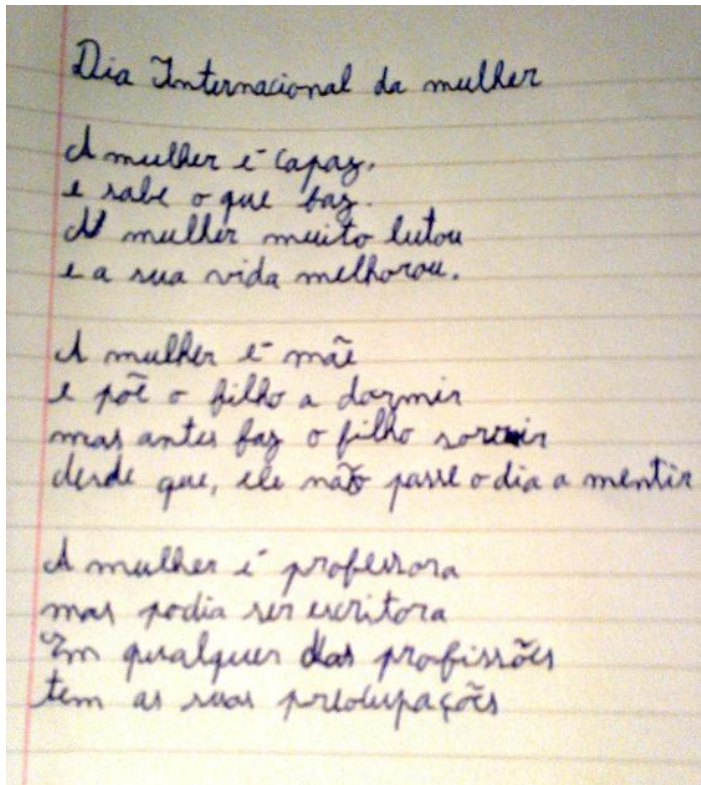 Dia Internacional da mulher
A mulher é capaz,
e sabe o que faz.
A mulher muito lutou
e a sua vida melhorou.
A mulher é mãe
e põe o filho a dormir
mas antes faz o filho sorrir
desde que, ele não passe o dia a mentir
A mulher é professora
mas podia ser escritora
Em qualquer das profissões
tem as suas preocupações